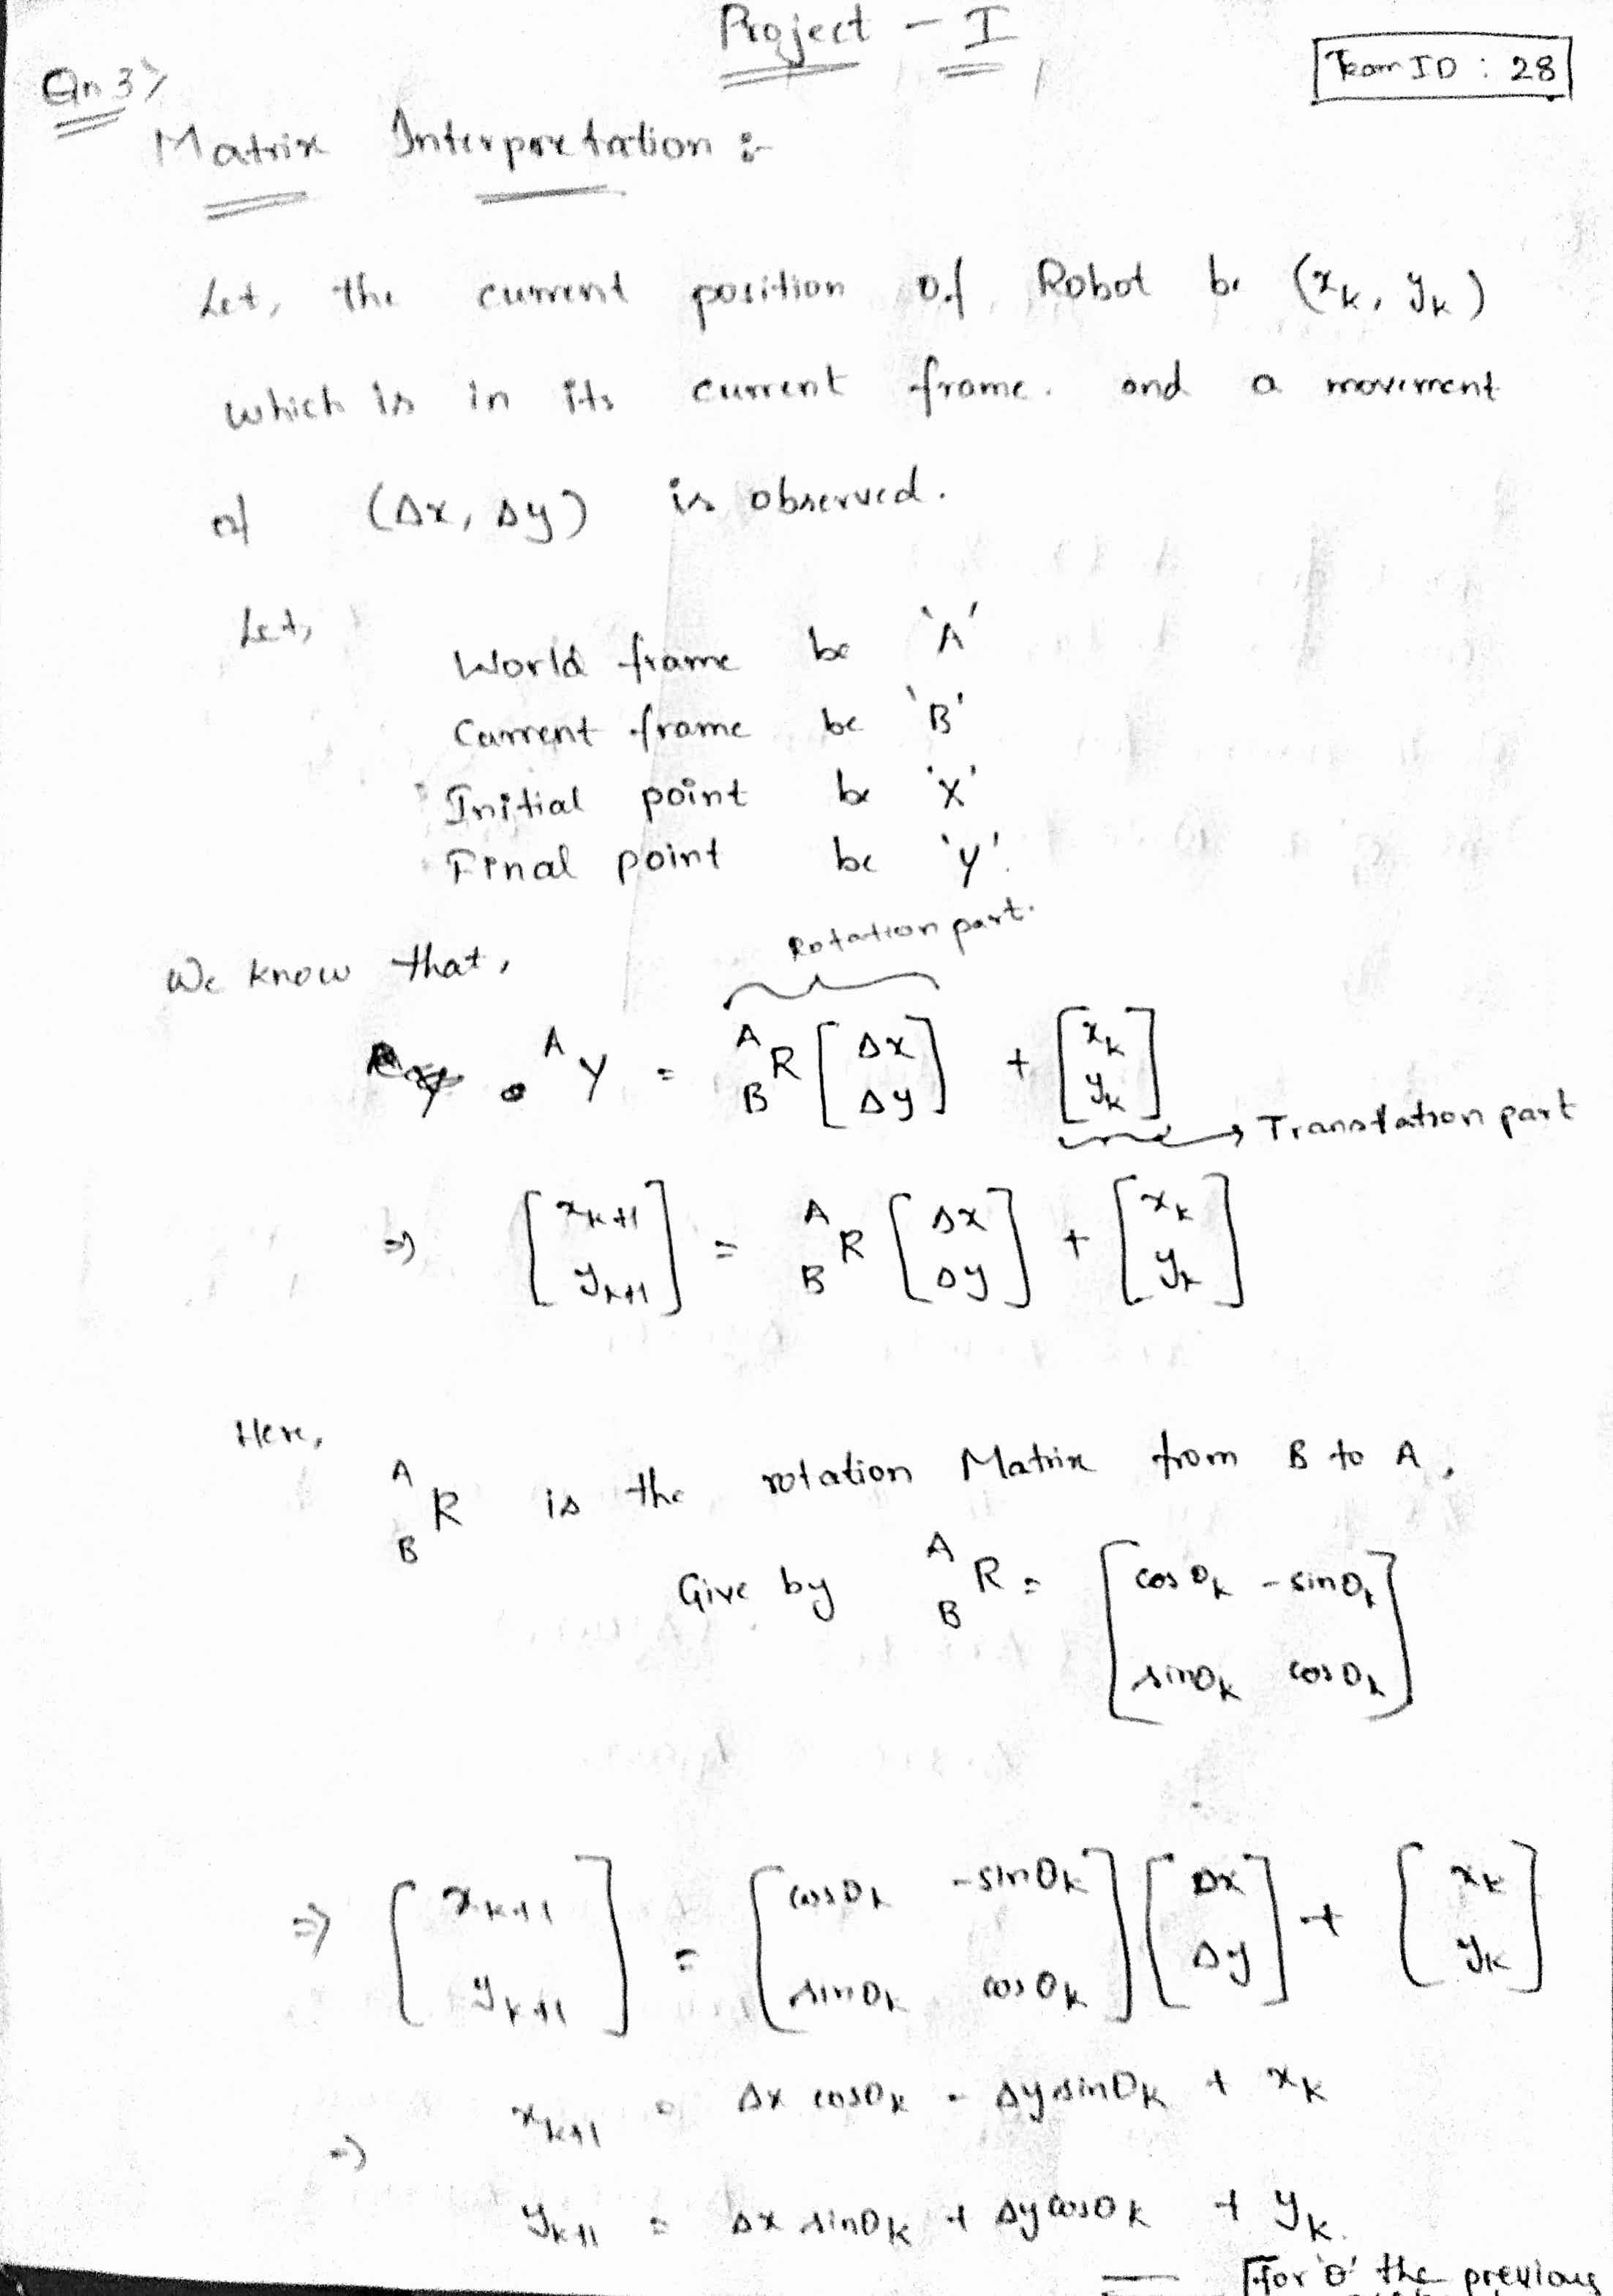 Project - I
Team ID : 28
Qn 3>
Matrix Interpretation :-
Let, the current position of Robot be (x_k, y_k)
which is in its current frame. and a movement
of (Δx, Δy) is observed.
Let,
World frame be 'A'
Current frame be 'B'
Initial point be 'X'
Final point be 'Y'.
Rotation part.
We know that,
^A Y = ^A_B R [Δx Δy] + [x_k y_k]
→ Translation part
⇒ [x_{k+1} y_{k+1}] = ^A_B R [Δx Δy] + [x_k y_k]
Here,
^A_B R is the rotation Matrix from B to A,
Give by ^A_B R = [cosθ_k -sinθ_k
sinθ_k cosθ_k]
⇒ [x_{k+1} y_{k+1}] = [cosθ_k -sinθ_k sinθ_k cosθ_k] [Δx Δy] + [x_k y_k]
⇒ x_{k+1} = Δx cosθ_k - Δy sinθ_k + x_k
y_{k+1} = Δx sinθ_k + Δy cosθ_k + y_k.
For 'θ' the previous